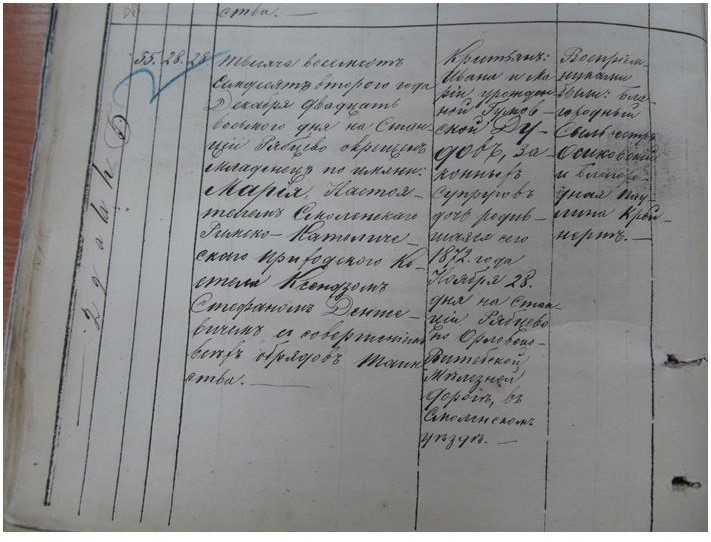 ства. —
55. 28. 28.
Тысяча восемьсотъ
семдесятъ второго года
Декабря двадцать
восьмого дня на Стан-
ціи Рябцево окрещенъ
младенецъ по имяни:
Марія. Настоя-
телемъ Смоленскаго
Римско-Католиче-
скаго приходскаго Ко-
стела Ксендзомъ
Стефаномъ Денисе-
вичемъ съ совершеніемъ
всѣхъ обрядовъ Таин-
ства. —
Кристьянъ:
Ивана и Ма-
ріи урожден-
ной
ской Ду-
довъ, за-
конныхъ
супруговъ
дочь родив-
шаяся сего
1872. года
Ноября 28.
дня на Стан-
ціи Рябцево
по Орловско-
Витебской
Желѣзной
дорогѣ, въ
Смоленскомъ
уѣздѣ. —
Воспріем-
никами
были: Бла-
городный
Сильвестръ
Осиковскій
и благоро-
дная Пау-
лина Крей-
нертъ. —